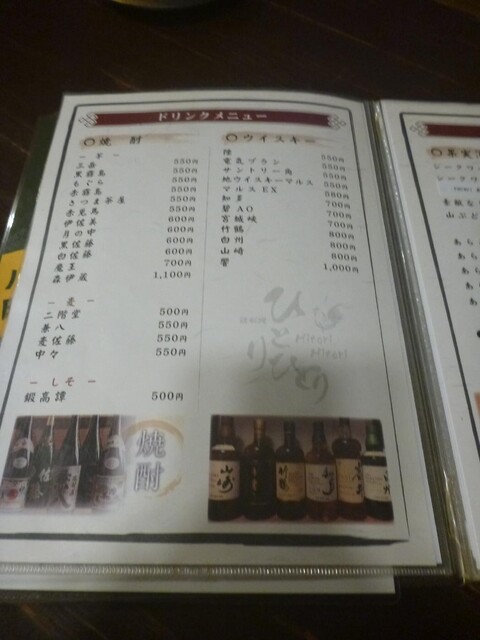 ドリンクメニュー
〇焼酎
－芋－
三岳 550円
黒霧島 550円
もぐら 550円
赤霧島 550円
さつま茶屋 550円
赤兎馬 550円
伊佐美 600円
月の中 600円
黒佐藤 600円
白佐藤 600円
魔王 700円
森伊蔵 1,100円
－麦－
二階堂 500円
兼八 550円
麦佐藤 550円
中々 550円
－しそ－
鍛高譚 500円
焼酎
〇ウイスキー
陸 550円
電気ブラン 550円
サントリー角 550円
地ウイスキーマルス 550円
マルスEX 580円
知多 700円
碧AO 700円
宮城峡 700円
竹鶴 800円
白州 800円
山崎 800円
響 1,000円
ひとりひとり
Hitori Hitori
山崎
〇果実